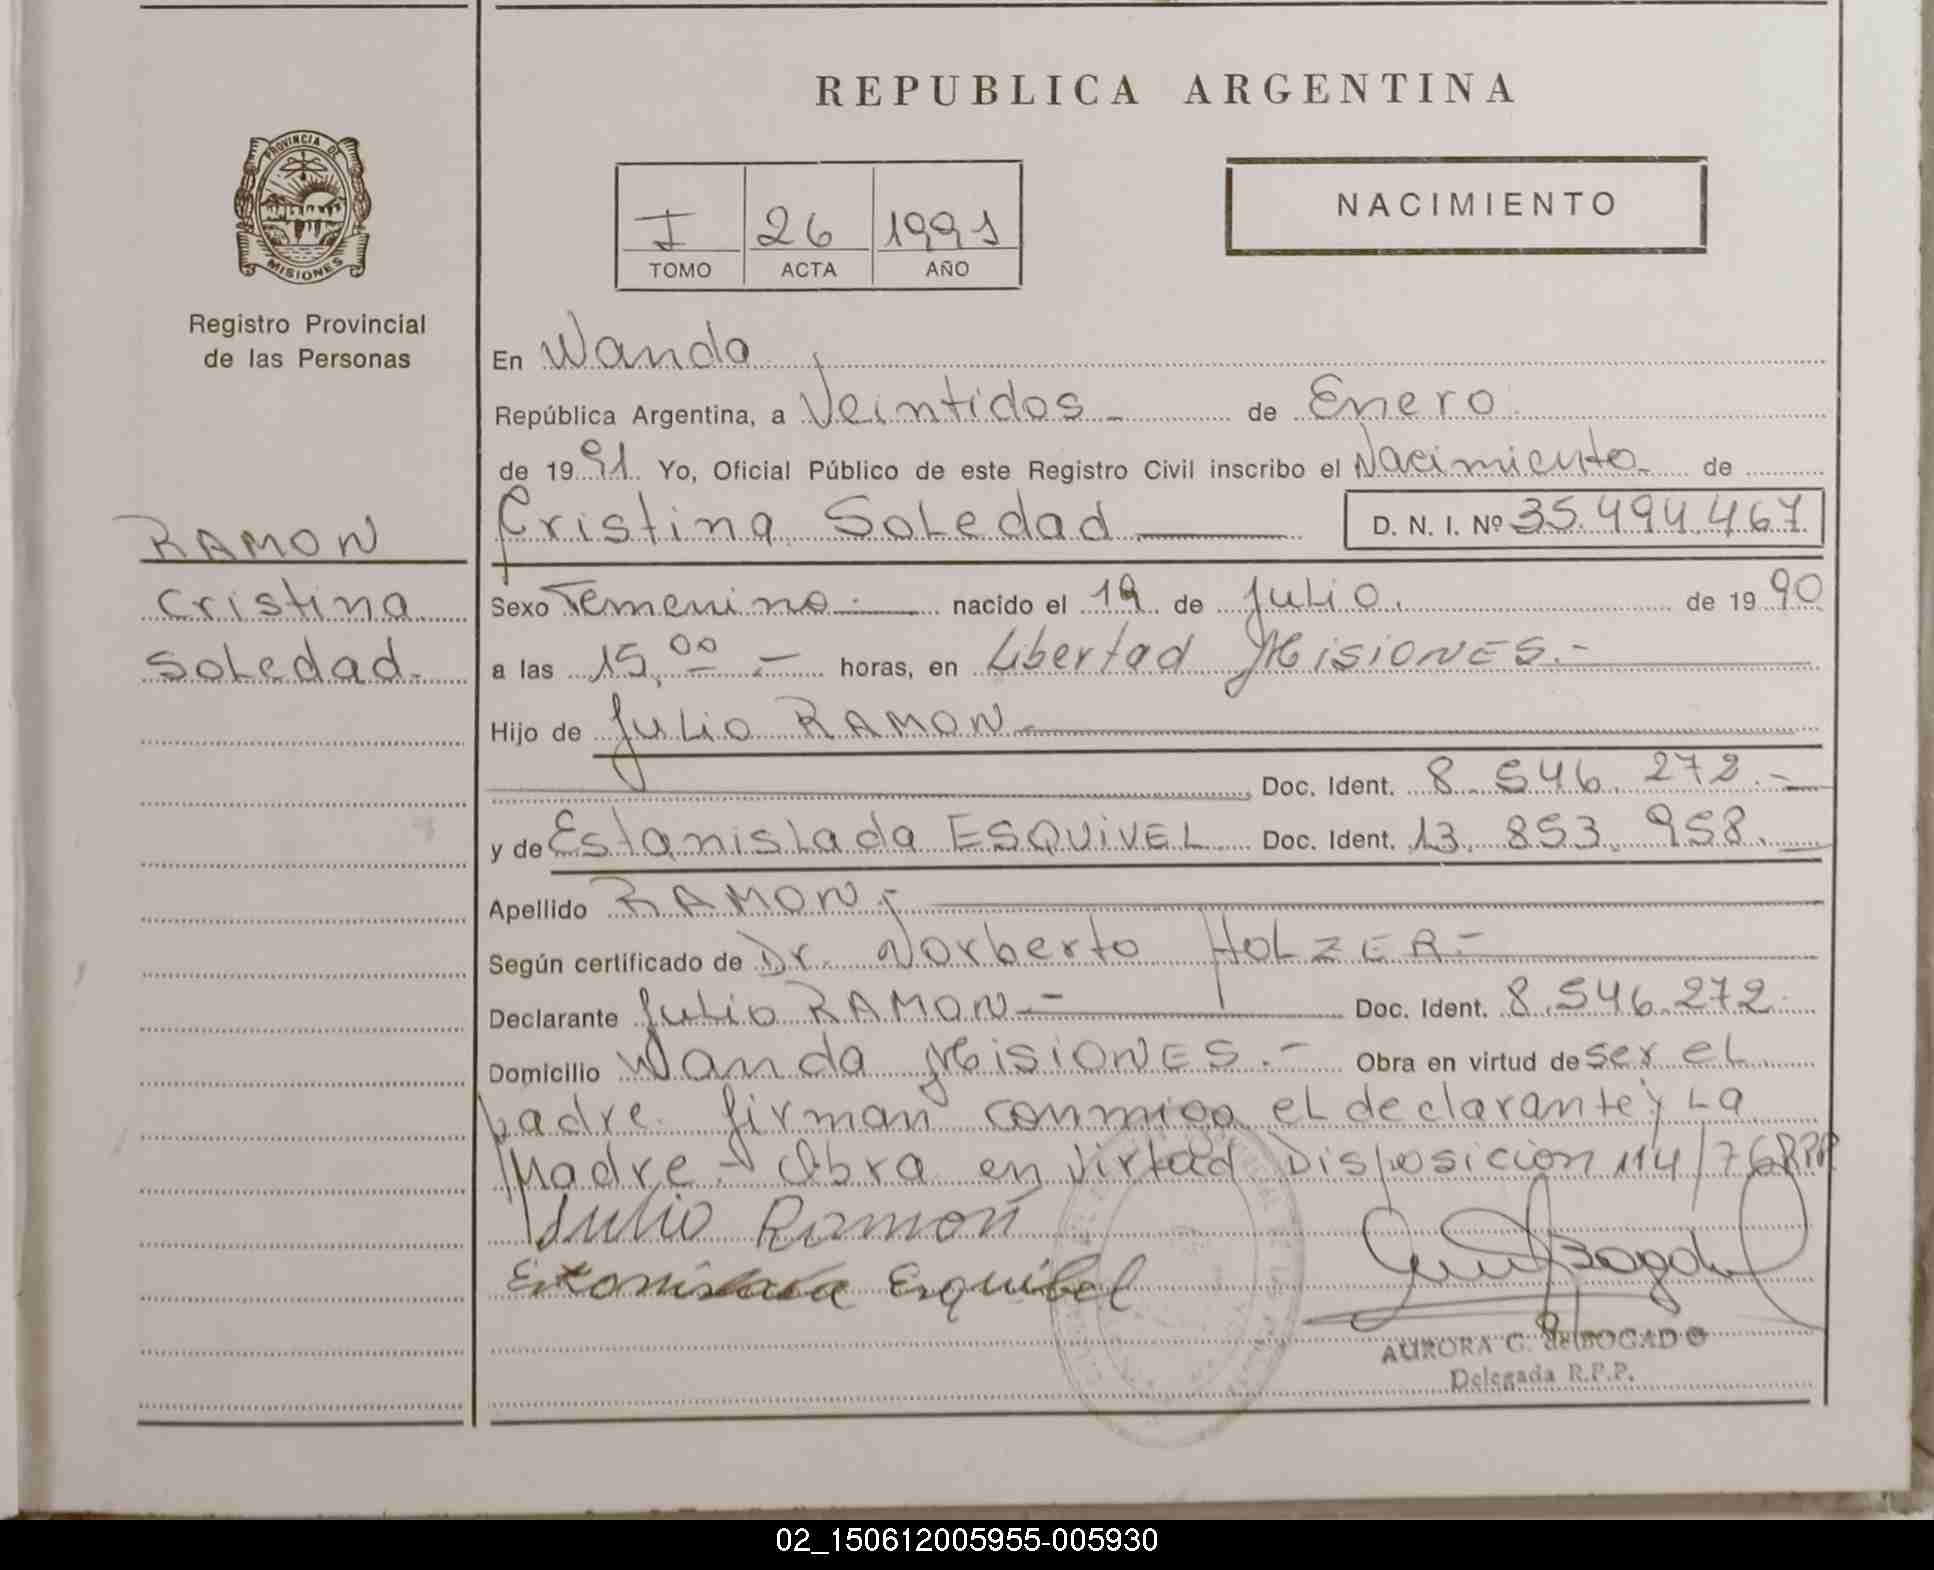 REPUBLICA ARGENTINA
PROVINCIA DE
MISIONES
Registro Provincial
de las Personas
I 26 1991
TOMO ACTA AÑO
NACIMIENTO
RAMON
Cristina
Soledad.
En Wanda
República Argentina, a Veintidos - de Enero
de 1991. Yo, Oficial Público de este Registro Civil inscribo el Nacimiento de
Cristina Soledad D. N. I. Nº 35.494.467
Sexo Femenino.- nacido el 19 de Julio de 1990
a las 15,00 - horas, en Libertad Misiones.-
Hijo de Julio RAMON
Doc. Ident. 8.546.272.-
y de Estanislada ESQUIVEL Doc. Ident. 13.853.958.-
Apellido RAMON.-
Según certificado de Dr. Norberto HOLZER.-
Declarante Julio RAMON.- Doc. Ident. 8.546.272.
Domicilio Wanda Misiones.- Obra en virtud de ser el
padre. firman conmigo el declarante y La
Madre.- Obra en virtud Disposicion 114/76RPP
Julio Ramon
Estanislada Esquibel
AURORA G. de BOGADO
Delegada R.P.P.
02_150612005955-005930